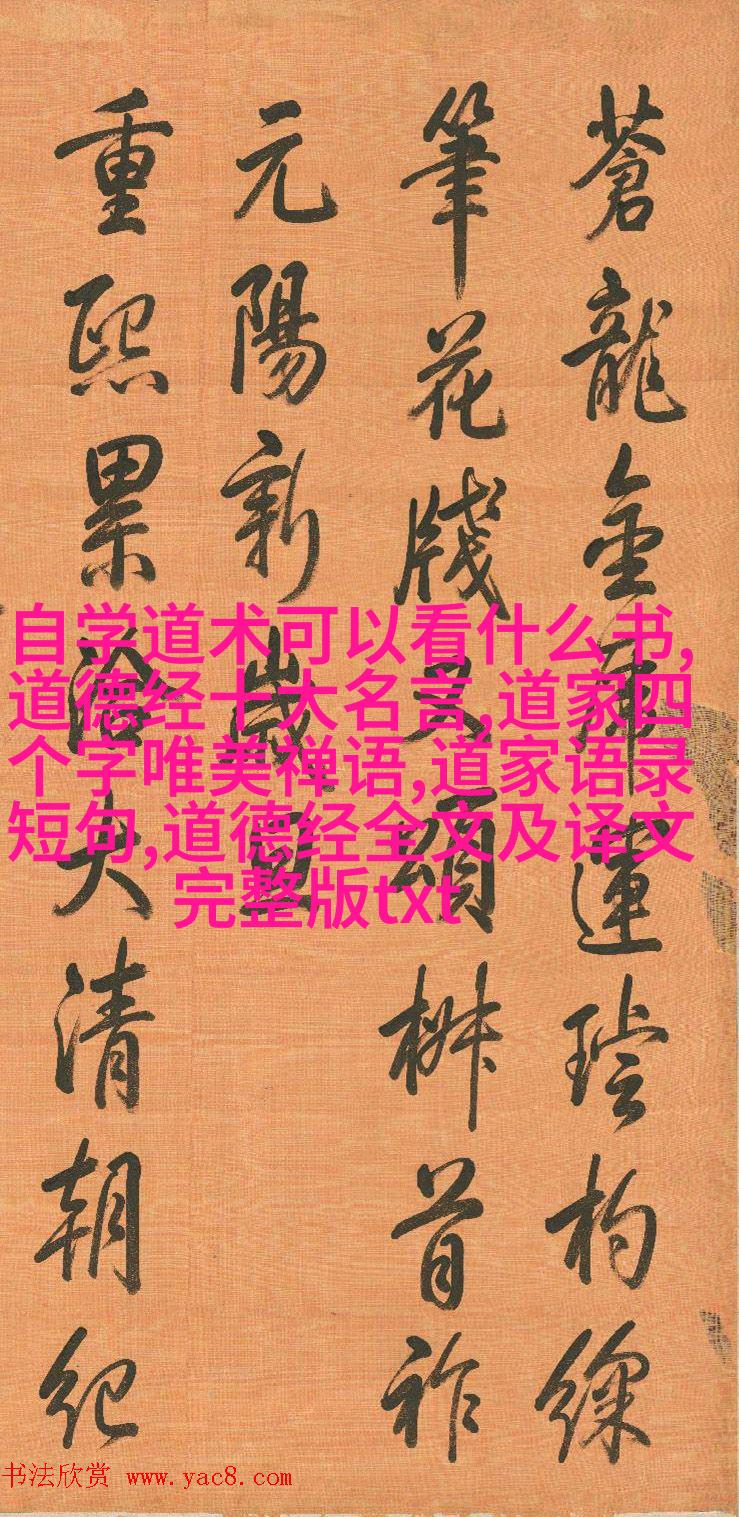 蒼龍金運璿杓
筆花牋又頌椒首祚
元陽新歲
重熙累洽大清朝紀
自学道术可以看什么书,
道德经十大名言,道家四
个字唯美禅语,道家语录
短句,道德经全文及译文
完整版txt
书法欣赏 www.yac8.com